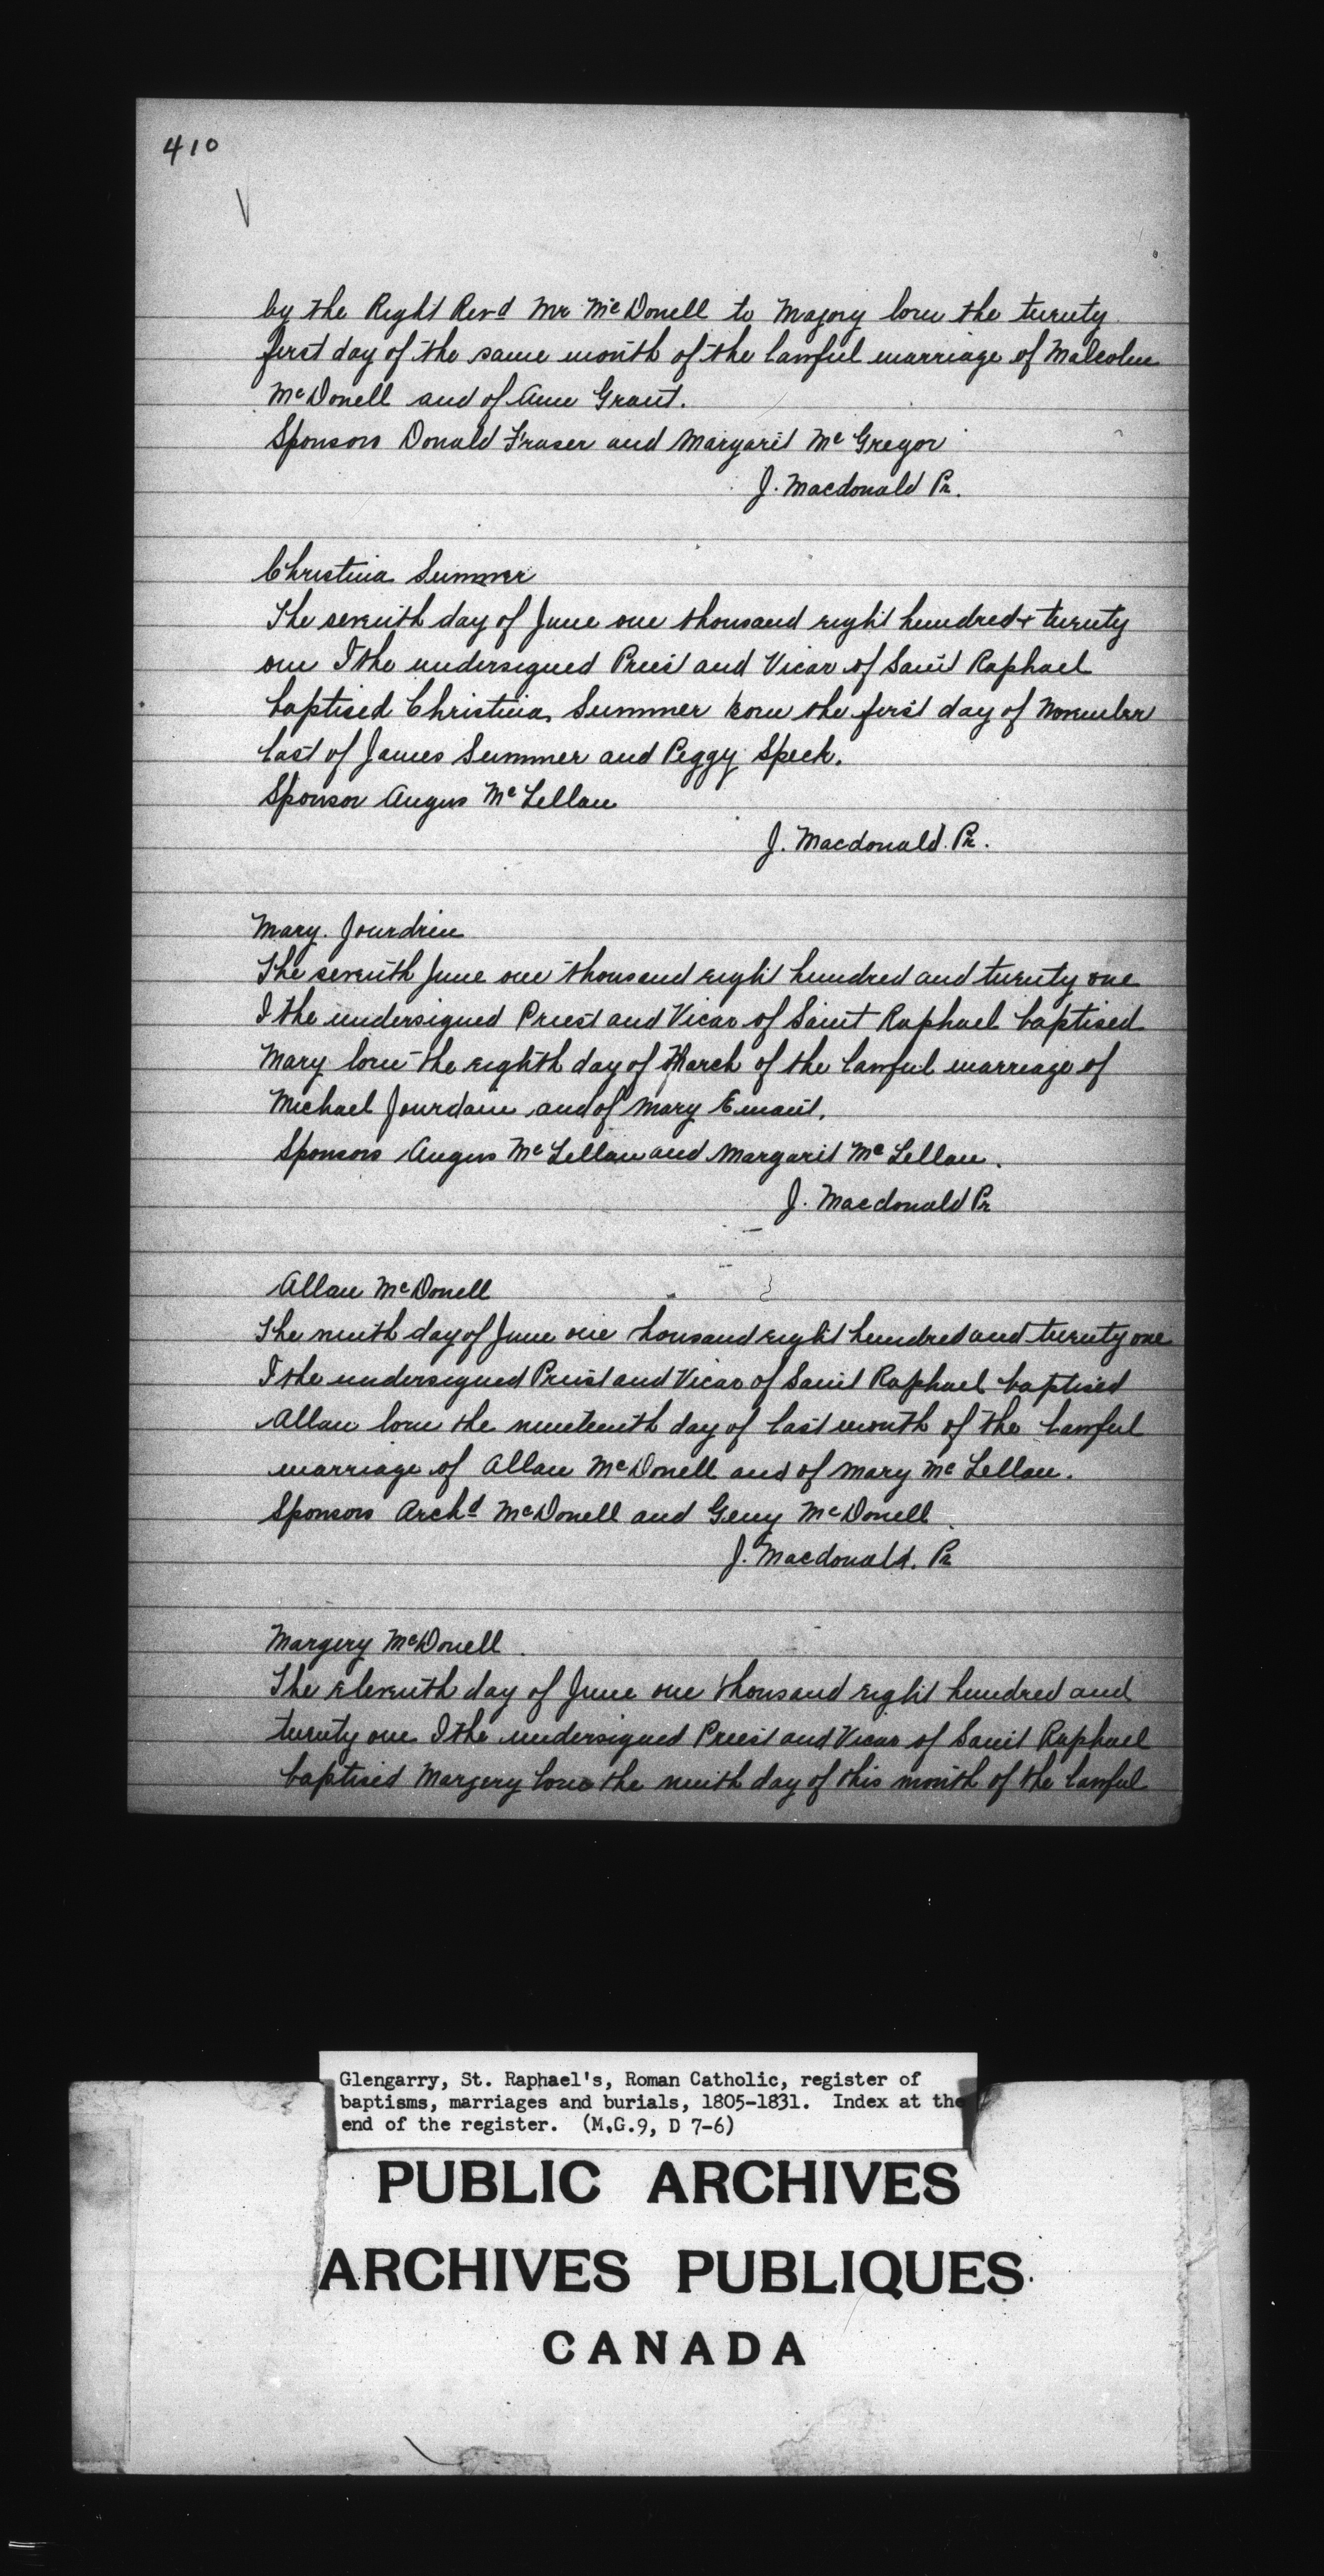 410
by the Right Revd Mr McDonell to Majory born the twenty
first day of the same month of the lawful marriage of Malcolm
McDonell and of Ann Grant.
Sponsors Donald Fraser and Margaret McGregor
J. Macdonald Pr.
Christina Summer
The seventh day of June one thousand eight hundred + twenty
one I the undersigned Priest and Vicar of Saint Raphael
baptised Christina Summer born the first day of November
last of James Summer and Peggy Speck.
Sponsor Angus McLellan
J. Macdonald. Pr.
Mary. Jourdien
The seventh June one thousand eight hundred and twenty one
I the undersigned Priest and Vicar of Saint Raphael baptised
Mary born the eighth day of March of the lawful marriage of
Michael Jourdain and of Mary Emant.
Sponsors Angus McLellan and Margaret McLellan.
J. Macdonald Pr
Allan McDonell
The ninth day of June one housand eight hundred and twenty one
I the undersigned Priest and Vicar of Saint Raphael baptised
Allan born the nineteenth day of last month of the lawful
marriage of Allan McDonell and of Mary McLellan.
Sponsors Archd McDonell and Geny McDonell
J. Macdonald. Pr
Margery McDonell.
The eleventh day of June one thousand eight hundred and
twenty one I the undersigned Priest and Vicar of Saint Raphael
baptised Margery born the ninth day of this month of the lawful
Glengarry, St. Raphael's, Roman Catholic, register of
baptisms, marriages and burials, 1805-1831. Index at the
end of the register. (M.G.9, D 7-6)
PUBLIC ARCHIVES
ARCHIVES PUBLIQUES
CANADA